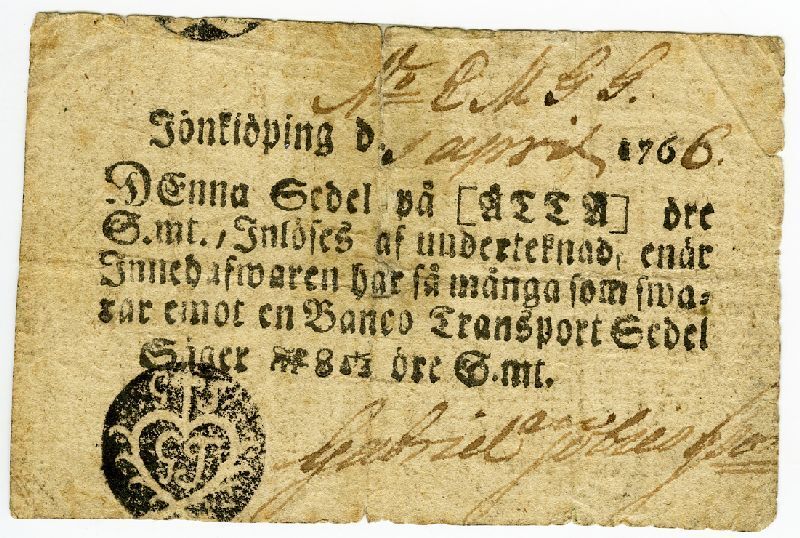 No E M G G.
Jönkiöping d. 1 april 1766.
DEnna Sedel på [ÅTTA] öre
S.mt., Inlöses af underteknad, enär
Innehafwaren har så många som swa-
rar emot en Banco Transport Sedel
Säger 8 öre S.mt.
Gabriel
GT